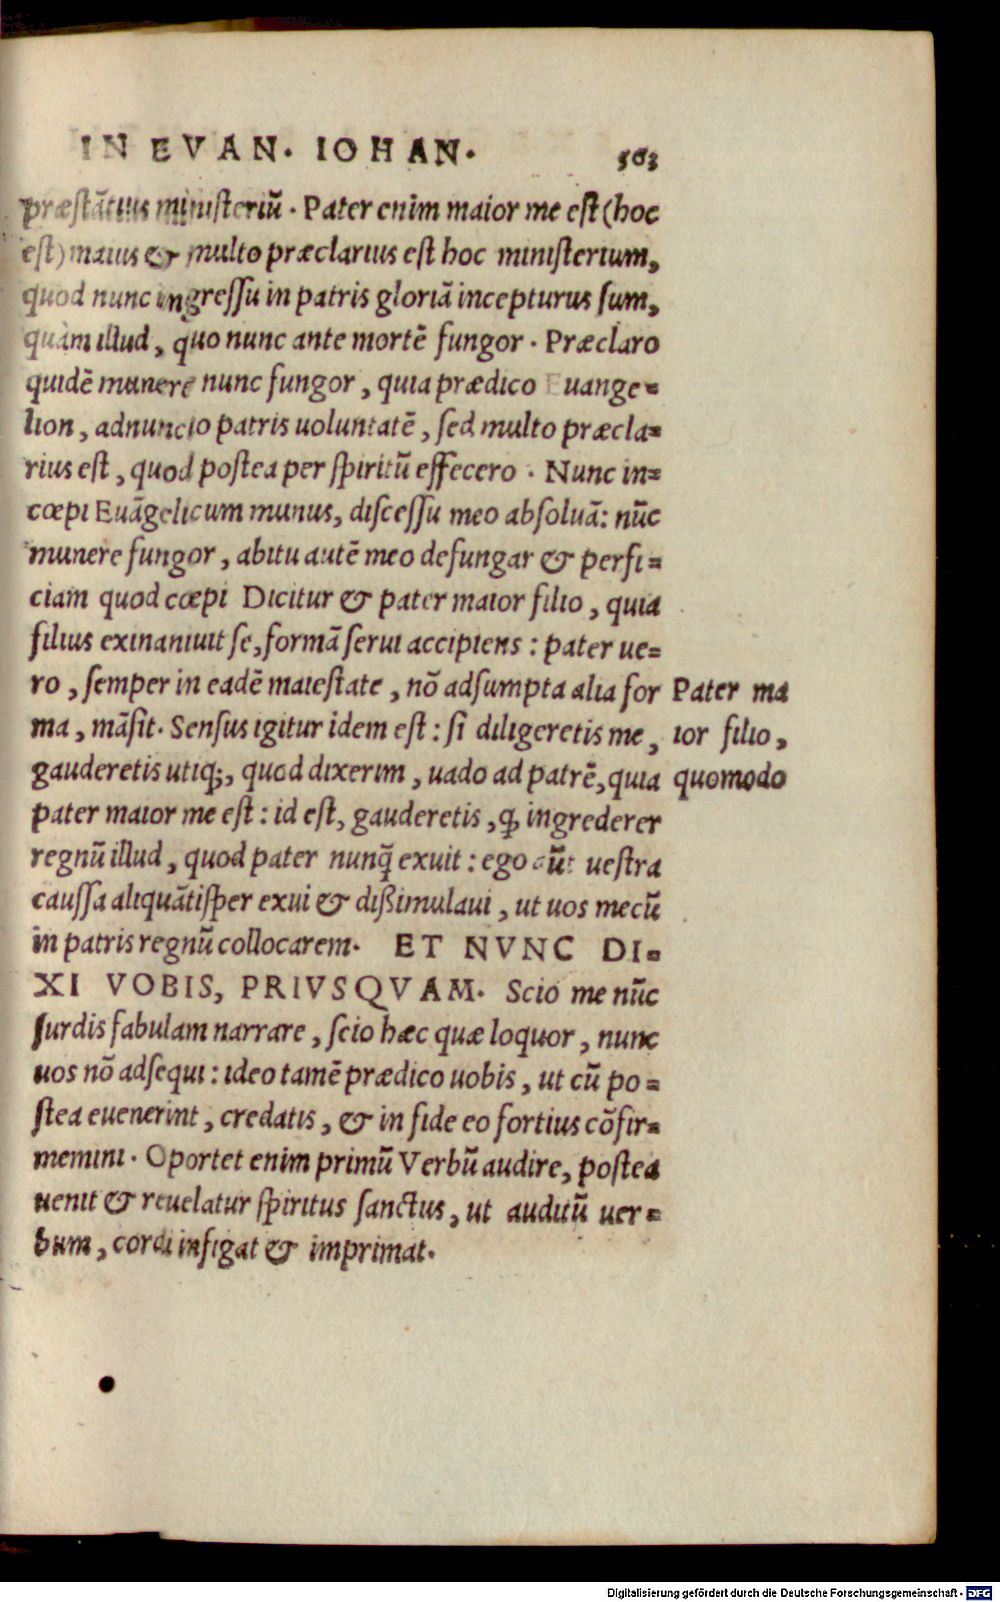 IN EVAN. IOHAN. 563
præstãtius ministeriũ. Pater enim maior me est (hoc
est) maius & multo præclarius est hoc ministerium,
quod nunc ingressu in patris gloriã incepturus sum,
quàm illud, quo nunc ante mortẽ fungor. Præclaro
quidẽ munere nunc fungor, quia prædico Euange=
lion, adnuncio patris uoluntatẽ, sed multo præcla=
rius est, quod postea per spiritũ effecero. Nunc in=
cœpi Euãgelicum munus, discessu meo absoluã: nũc
munere fungor, abitu autẽ meo defungar & perfi=
ciam quod cœpi Dicitur & pater maior filio, quia
filius exinaniuit se, formã serui accipiens: pater ue=
ro, semper in eadẽ maiestate, nõ adsumpta alia for
ma, mãsit. Sensus igitur idem est: si diligeretis me,
gauderetis utiq;, quod dixerim, uado ad patrẽ, quia
pater maior me est: id est, gauderetis, ꝙ ingrederer
regnũ illud, quod pater nunq̃ exuit: ego aũt uestra
caussa aliquãtisper exui & dißimulaui, ut uos mecũ
in patris regnũ collocarem. ET NVNC DI=
XI VOBIS, PRIVSQVAM. Scio me nũc
surdis fabulam narrare, scio hæc quæ loquor, nunc
uos nõ adsequi: ideo tamẽ prædico uobis, ut cũ po=
stea euenerint, credatis, & in fide eo fortius cõfir=
memini. Oportet enim primũ Verbũ audire, postea
uenit & reuelatur spiritus sanctus, ut auditũ uer=
bum, cordi infigat & imprimat.
Pater ma
ior filio,
quomodo
Digitalisierung gefördert durch die Deutsche Forschungsgemeinschaft - DFG